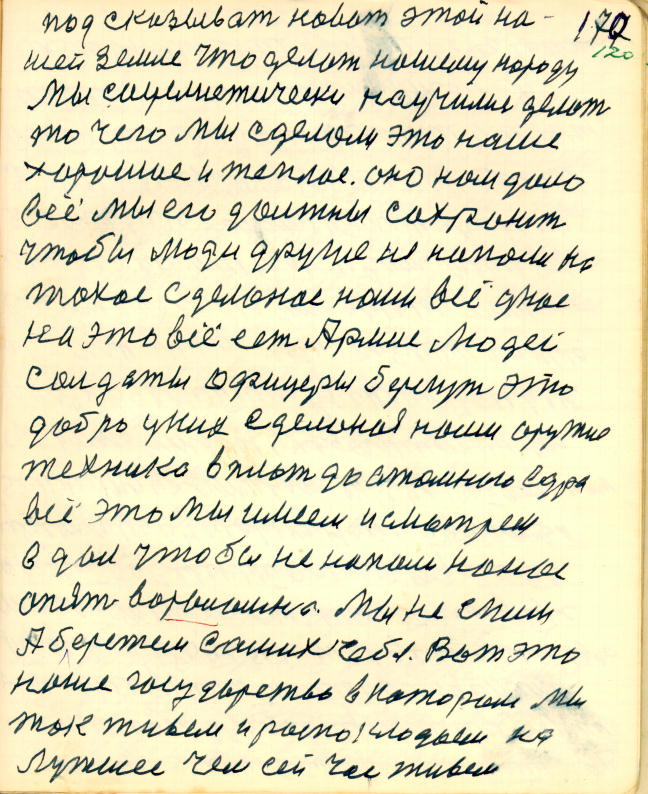 под сказыват новат этой на-
170
120
шей земле что делат нашему народу
Мы социлистически научилис делат
то чего мы сделоли это наше
хорошое и теплое. оно нам дало
всё мы его должны сохранит
чтобы люди другие не напали на
токое сделоное нами всё
на это всё ест Армие людей
солдаты офицеры берегут это
добро у них сделоноя нами оружие
техника вплот до атомного едра
всё это мы имеем и смотрем
в дал чтобы не напали на нас
опят Мы не спим
А бережем самих себя. Вот это
наше государство в котором мы
так живем и на
лутшее чем сей час живем